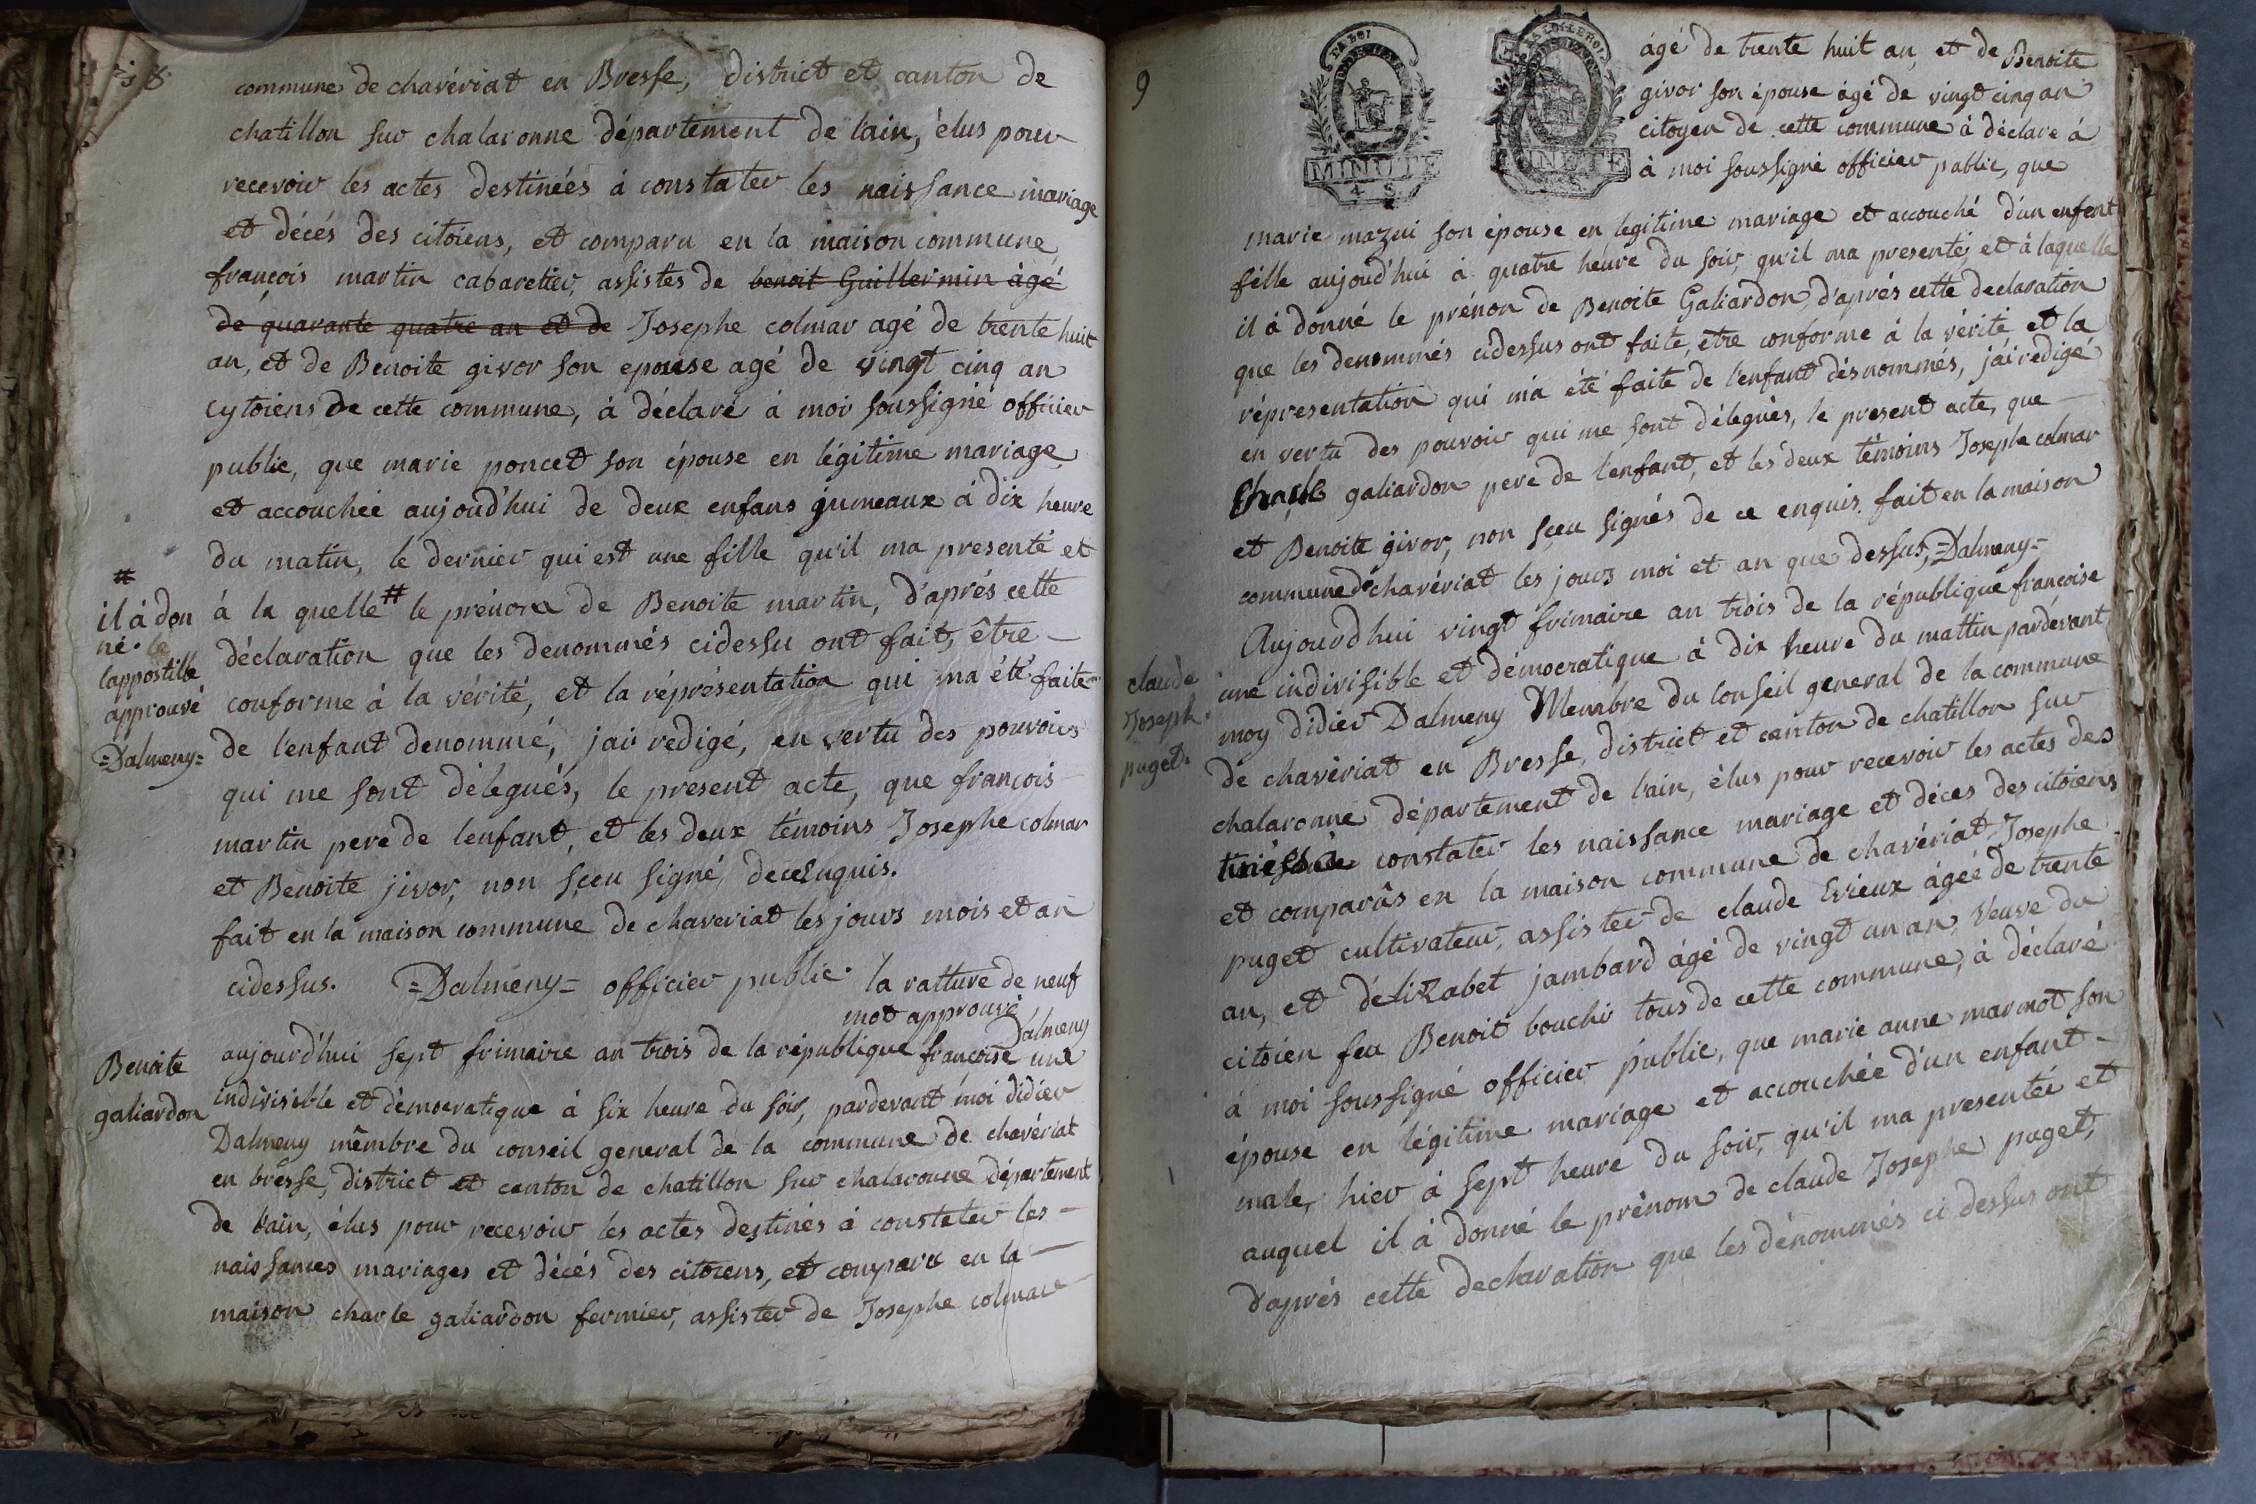 8
commune de chavériat en Bresse, district et canton de
chatillon sur chalaronne département de l'ain, élus pour
recevoir les actes destinées à constater les naissance mariage
et décés des citoiens, et comparu en la maison commune
françois martin cabaretier, assistés de benoit Guillermin âgé
de quarante quatre an et de Josephe colmar agé de trente huit
an, et de Benoite givor son epouse agé de vingt cinq an
cytoiens de cette commune, à déclaré à moi soussigné officier
public, que marie poncet son épouse en légitime mariage
et accouchée aujoud'hui de deux enfans jumeaux à dix heure
du matin, le dernier qui est une fille qu'il ma presenté et
à la quelle # le prénom de Benoite martin, d'aprés cette
déclaration que les denommés cidessu ont fait, être
conforme à la vérité, et la représentation qui ma été faite
de l'enfant denommé, jai redigé, en vertu des pouvoirs
qui me sont délegués, le present acte, que françois
martin pere de lenfant, et les deux témoins Josephe colmar
et Benoite jivor, non sçeu signé, decelnquis.
fait en la maison commune de chaveriat les jours mois et an
cidessus. =Dalmeny= officier public. la ratture de neuf
mot approuvé
Dalmeny
#
il à don
né. le
lappostille
approuvé
=Dalmeny=
Benoite
galiardon
aujourd'hui sept frimaire an trois de la république françoise une
indivisible et démocratique à six heure du soir, pardevant moi didier
Dalmeny membre du conseil general de la commune de chavériat
en bresse, district et canton de chatillon sur chalaronne département
de l'ain, élus pour recevoir les actes destinés à constater les
naissances mariages et décés des citoiens, et comparu en la
maison charle galiardon fermier, assister de Josephe colmar
9
LA LOI
MINUTE
4 S.
LA LOI LE ROI
MINUTE
âgé de trente huit an, et de Benoite
givor son épouse âgé de vingt cinq an
citoyen de cette commune à déclare à
à moi soussigné officier public, que
marie mazui son épouse en legitime mariage et accouché d'un enfent
fille aujoud'hui à quatre heure du soir, qu'il ma presenté, et à laquelle
il à donné le prénon de Benoite Galiardon, d'aprés cette declaration
que les denommés cidessus ont faite, être conforme à la vérité et la
répresentation qui m'a été faite de l'enfant désnommés, jái redigé
en vertu des pouvoir qui me sont délegués, le present acte, que
galiardon pere de l'enfant, et les deux témoins Josephe colmar
et Benoite givor, non sçeu signés de ce enquis. fait en la maison
commune de chavériat les jours moi et an que dessus, =Dalmeny=
claude
Joseph.
puget.
Aujourd'hui vingt frimaire an trois de la république françoise
une indivisible et démocratique à dix heure du mattin pardevant
moy didier Dalmeny Membre du Conseil general de la commune
de chavériat en Bresse, district et canton de chatillon sur
chalaronne département de l'ain, élus pour recevoir les actes des
constater les naissance mariage et déces des citoiens
et comparûs en la maison commune de chavériat Josephe
puget cultivateur, assister de claude Erieux âgée de trente
an, et délizabet jambard âgé de vingt un an, veuve du
citoien feu Benoit bouchir tous de cette commune, à déclaré
à moi soussigné officier public, que marie anne marmot son
épouse en légitime mariage et accouchée d'un enfant
male, hier à sept heure du soir, qu'il ma presentée et
auquel il à donné le prénom de claude Josephe puget,
d'aprés cette declaration que les dénommés ci dessus ont